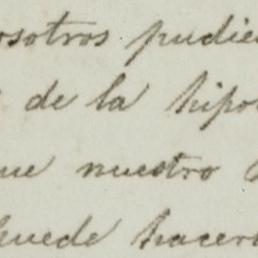 osotros pudie
de la hipo
ue nuestro
puede hacer